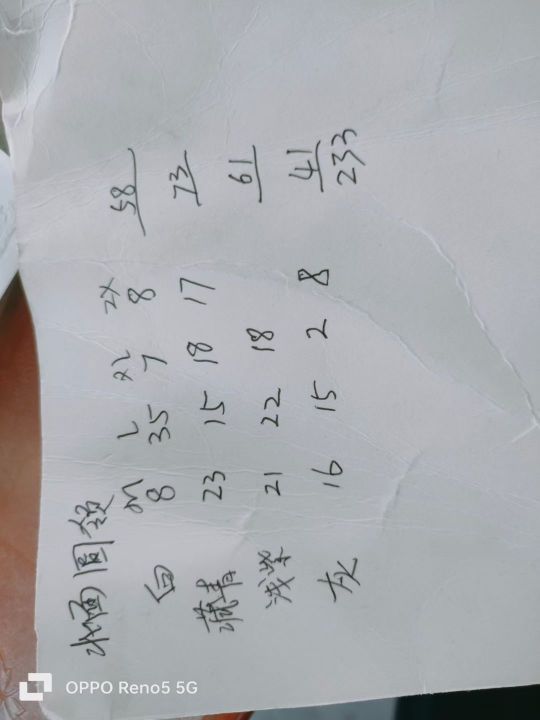 水面圆领
M L XL 2X
白 8 35 7 8 58
藏青 23 15 18 17 73
浅紫 21 22 18 61
灰 16 15 2 8 41
233
OPPO Reno5 5G